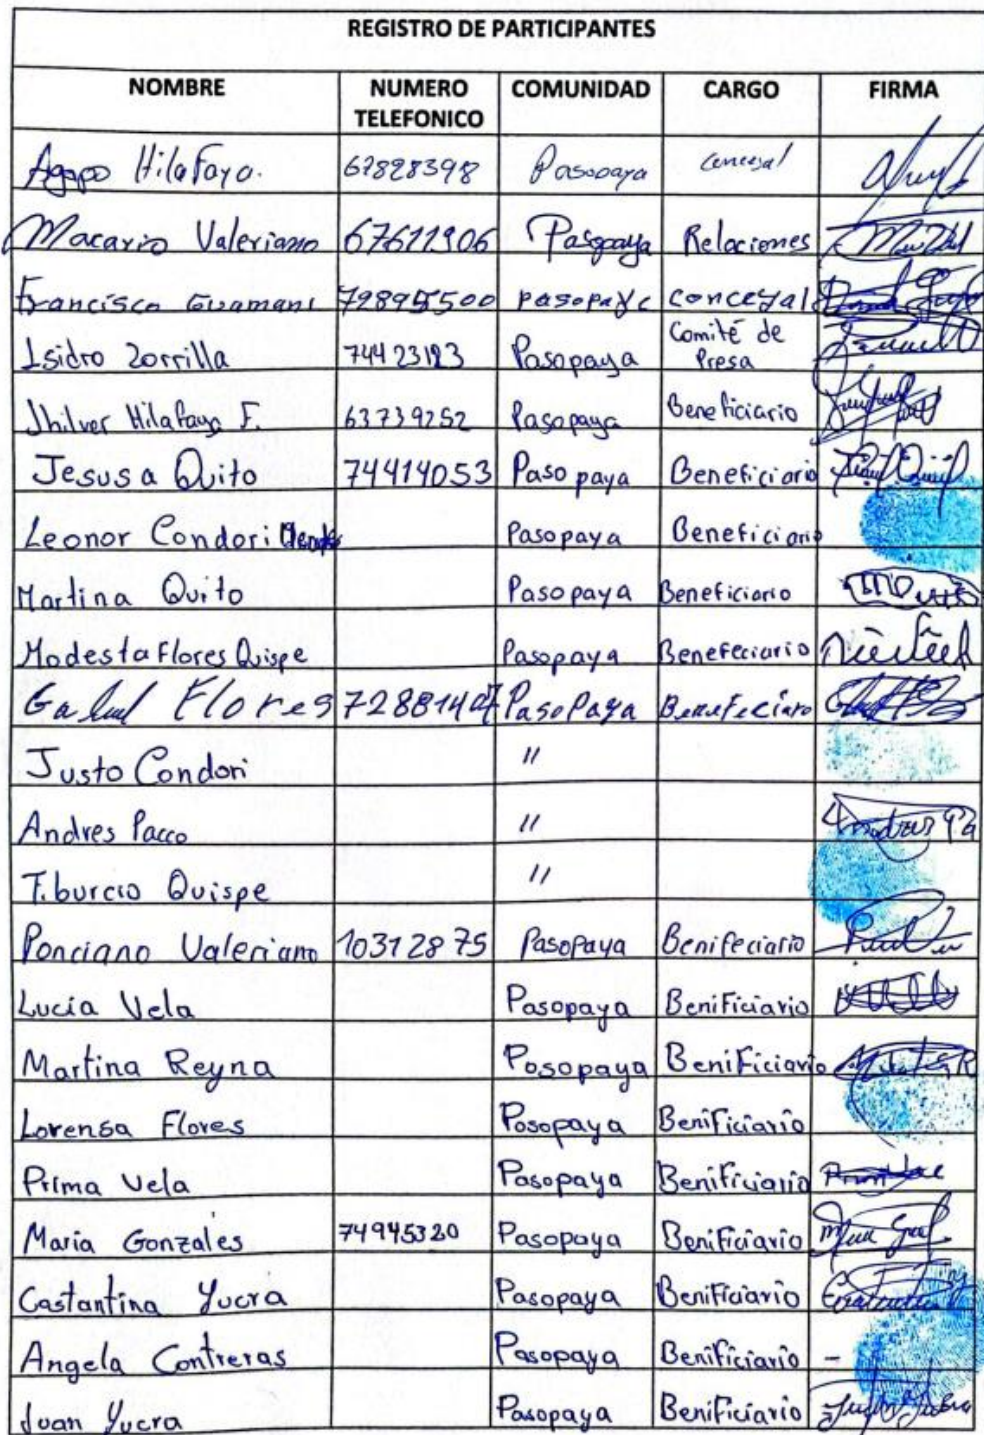 REGISTRO DE PARTICIPANTES
NOMBRE NUMERO TELEFONICO COMUNIDAD CARGO FIRMA
Agapo Hilafaya. 67828398 Pasopaya concejal
Macario Valeriano 67611906 Pasopaya Relaciones
Francisco Guamani 72895500 pasopaya conceyal
Isidro Zorrilla 74423123 Pasopaya Comité de Presa
Jhilver Hilafaya F. 63739252 Pasopaya Beneficiario
Jesusa Quito 74414053 Pasopaya Beneficiario
Leonor Condori Pasopaya Beneficiario
Martina Quito Pasopaya Beneficiario
Modesta Flores Quispe Pasopaya Benefeciario
Flores Pasopaya Benefeciaro
Justo Condori "
Andres Pacco "
Tiburcio Quispe "
Ponciano Valeriano 10312875 Pasopaya Benifeciario
Lucia Vela Pasopaya Benificiario
Martina Reyna Pasopaya Benificiario
Lorensa Flores Pasopaya Benificiario
Prima Vela Pasopaya Benificiario
Maria Gonzales 74945320 Pasopaya Benificiario
Costantina Yucra Pasopaya Benificiario
Angela Contreras Pasopaya Benificiario -
Juan Yucra Pasopaya Benificiario